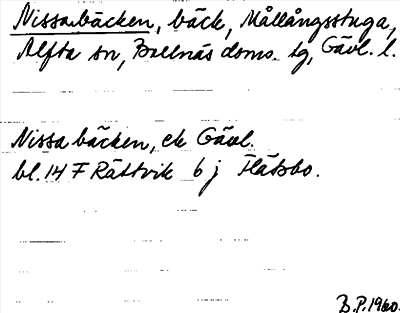 Nissabäcken, bäck, Mållångsstuga,
Alfta sn, Bollnäs doms. tg, Gävl. l.
Nissabäcken, ek Gävl.
bl. 14 F Rättvik 6 j Flätsbo.
B.P. 1960.